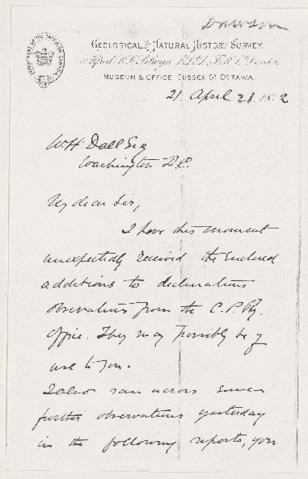 Dawson
GEOLOGICAL & NATURAL HISTORY SURVEY.
Alfred R.C. Selwyn, L.L.D., F.R.S., Director
MUSEUM & OFFICE, SUSSEX ST. OTTAWA.
21 April 1882
W.H. Dall Esq
Washington D.C.
My dear Sir,
I have this moment
unexpectedly received the enclosed
additions to declination
observations from the C.P.Ry.
Office. They may possibly be of
use to you.
I also ran across some
further observations yesterday
in the following reports, you